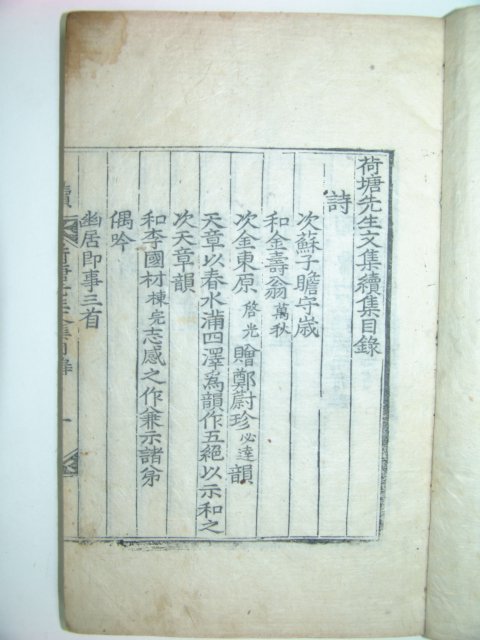 荷塘先生文集續集目錄
詩
次蘇子瞻守歲
和金壽翁萬秋
次金東原啓光贈鄭蔚珍必達韻
天章以春水滿四澤爲韻作五絕以示和之
次天章韻
和李國材棟完志感之作兼示諸弟
偶吟
幽居卽事三首